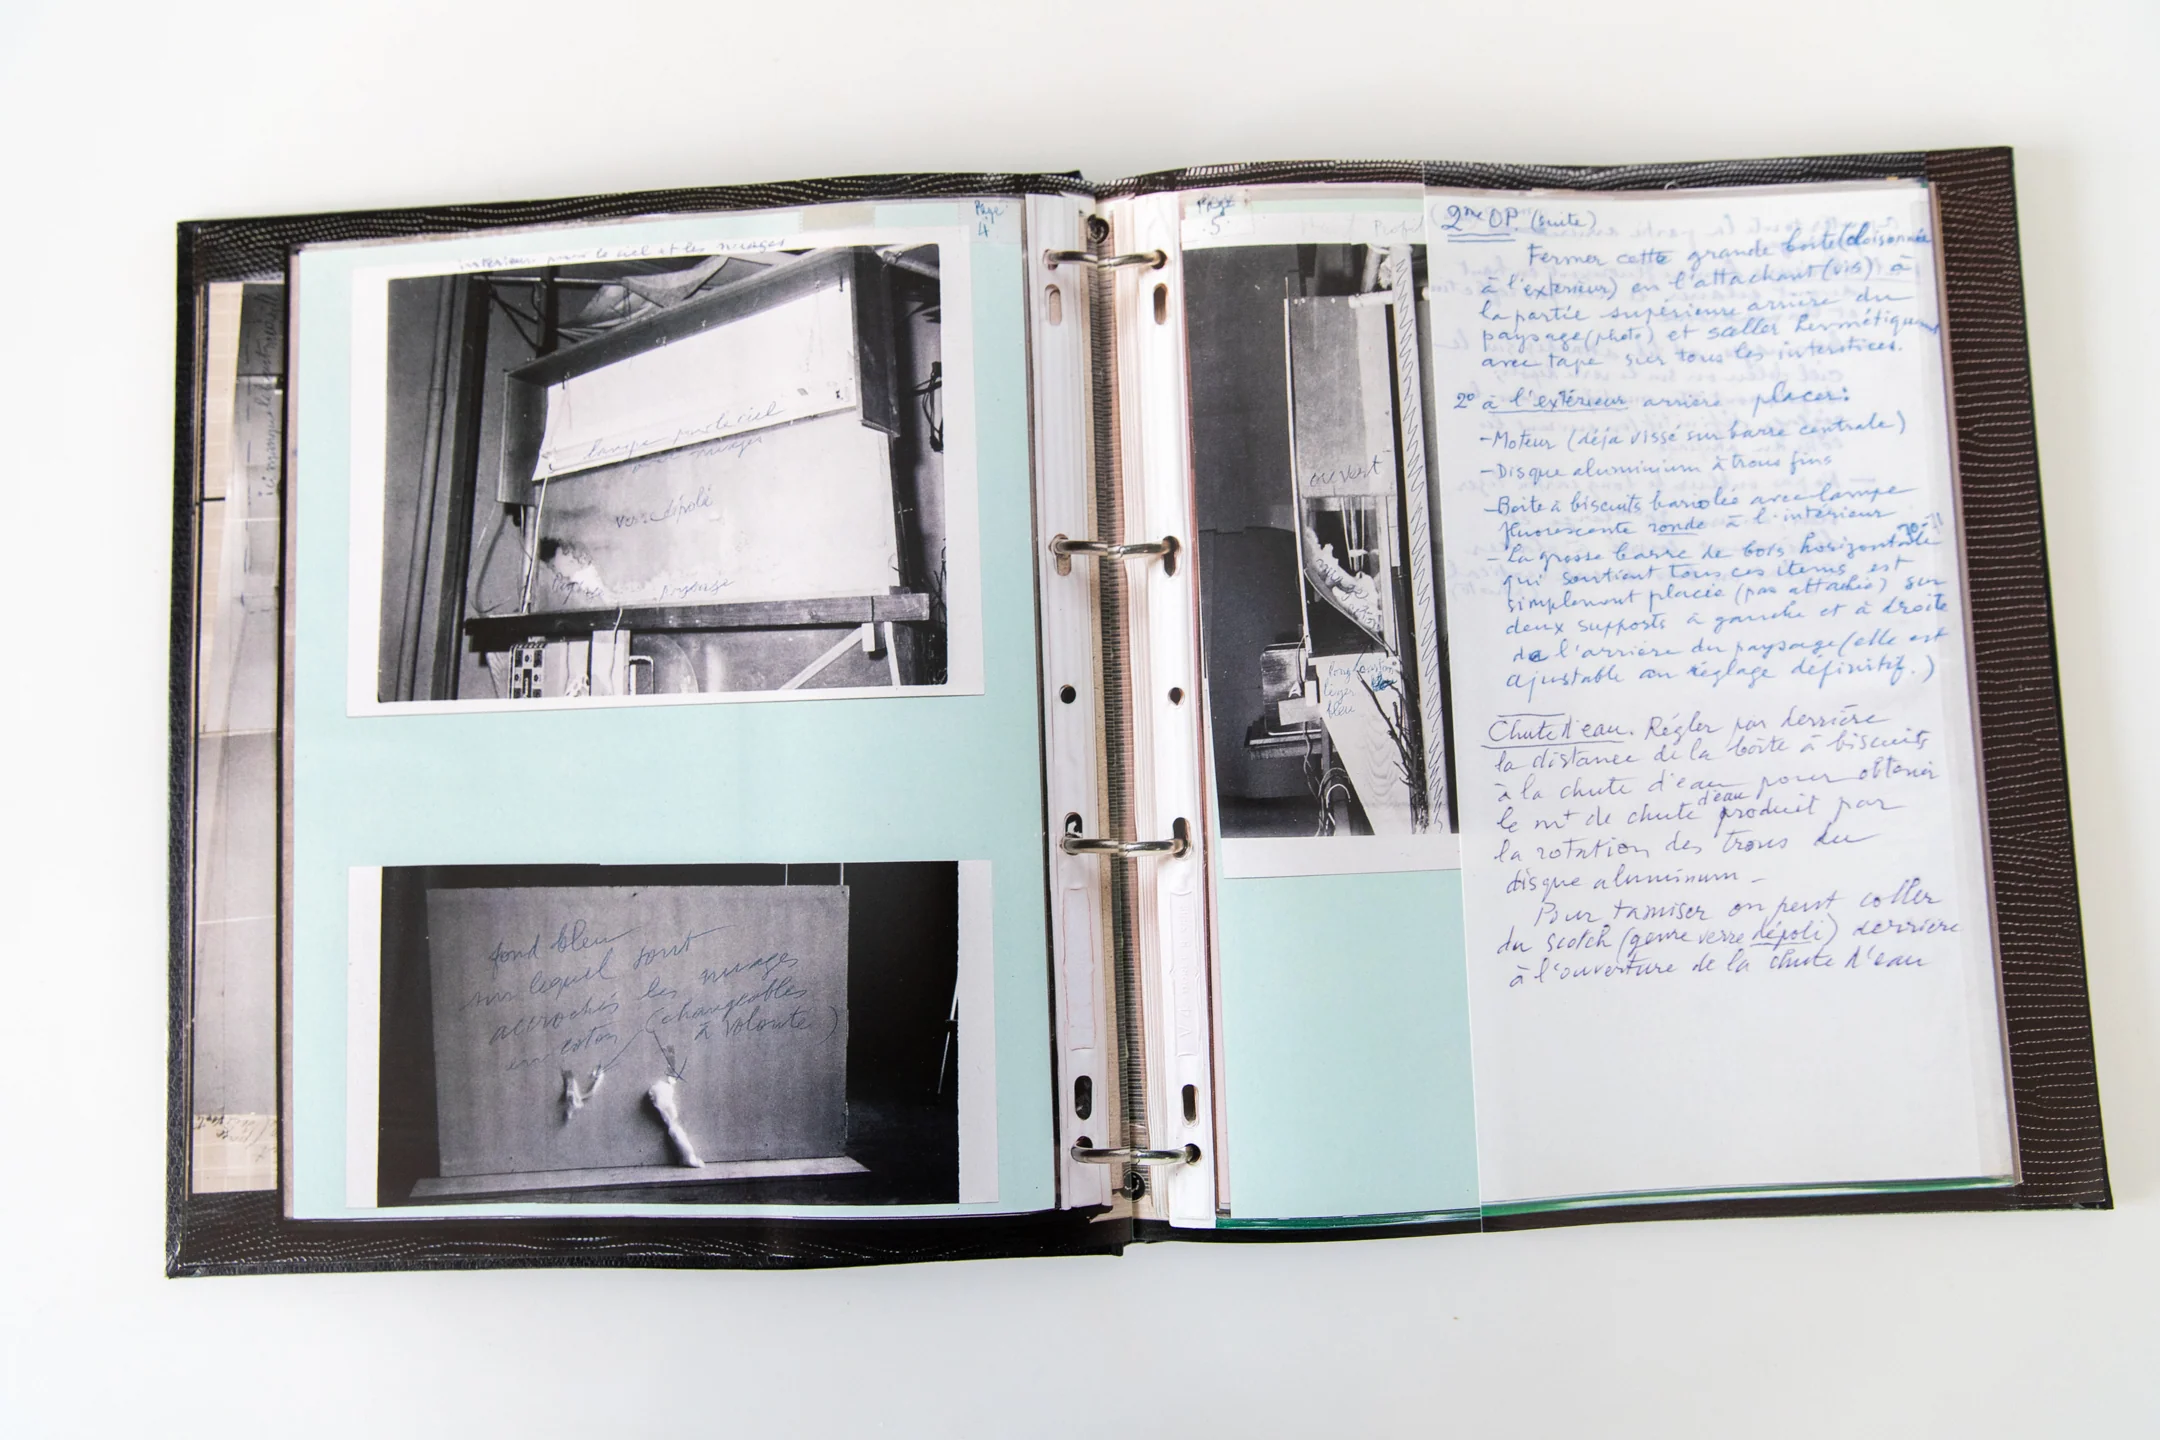 Page
4
intérieur pour le ciel et les nuages
lampe pour le ciel
avec nuages
verre dépoli
fond bleu
sur lequel sont
accrochés les nuages
en coton (changeables
à volonté)
Page
5
Profil
ouvert
nuage
coton
léger
bleu
2me OP. (suite)
Fermer cette grande boite (cloisonnée
à l'extérieur) en l'attachant (vis) à
la partie supérieure arrière du
paysage (photo) et sceller hermétiquement
avec tape sur tous les interstices.
2° à l'extérieur arrière placer:
- Moteur (déjà vissé sur barre centrale)
- Disque aluminium à trous fins
- Boite à biscuits bariolée avec lampe
fluorescente ronde à l'intérieur
- La grosse barre de bois horizontale
qui soutient tous ces items est
simplement placée (pas attachée) sur
deux supports à gauche et à droite
de l'arrière du paysage (elle est
ajustable au réglage définitif.)
Chute d'eau. Régler par derrière
la distance de la boite à biscuits
à la chute d'eau pour obtenir
le mt de chute d'eau produit par
la rotation des trous du
disque aluminum -
Pour tamiser on peut coller
du scotch (genre verre dépoli) derrière
à l'ouverture de la chute d'eau